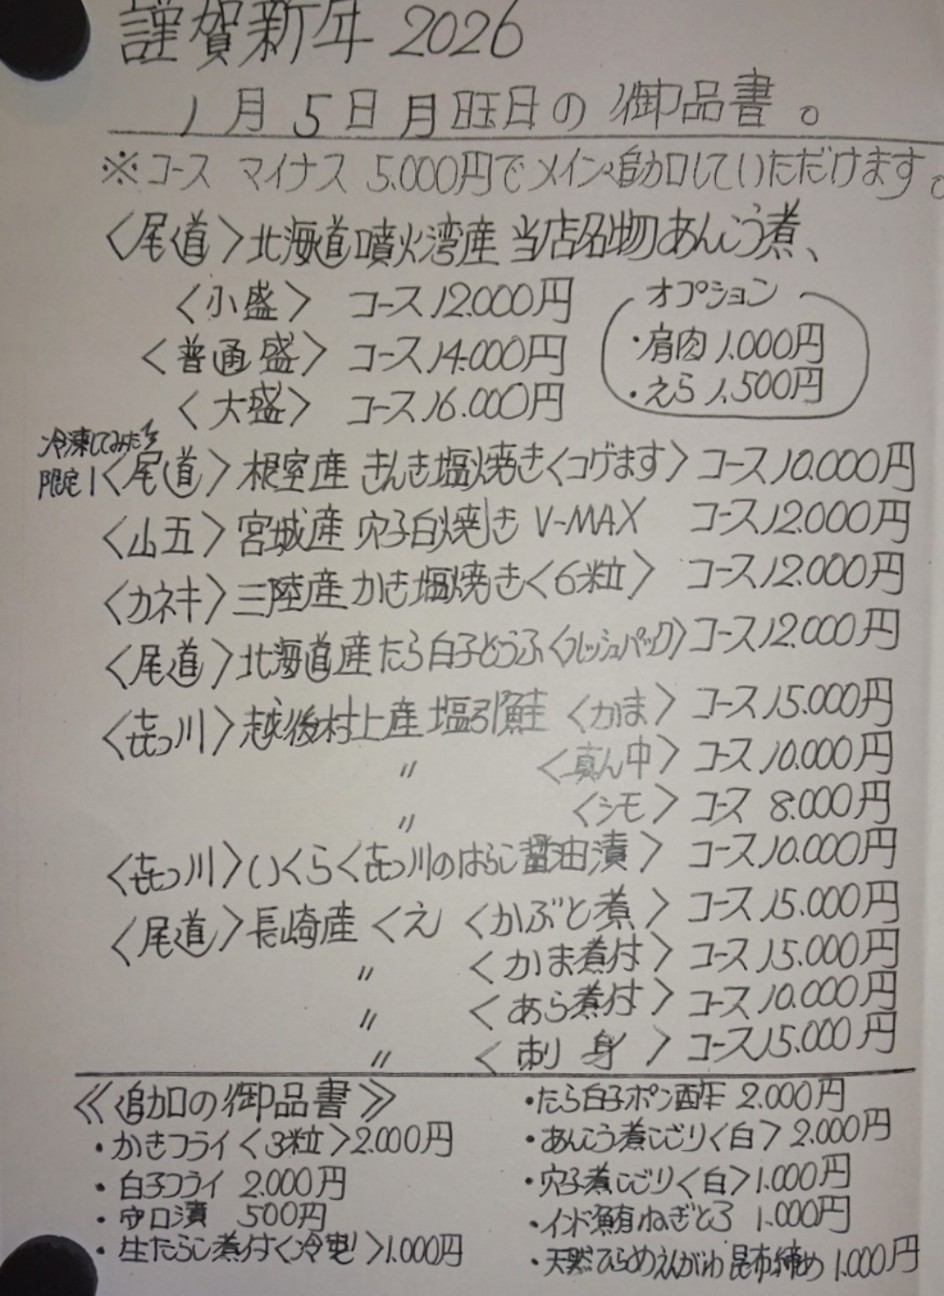 謹賀新年 2026
1月5日月曜日の御品書。
※コース マイナス 5.000円でメイン追加していただけます。
〈尾道〉北海道噴火湾産 当店名物あんこう煮、
〈小盛〉 コース12.000円
〈普通盛〉 コース14.000円
〈大盛〉 コース16.000円
オプション
・肩肉 1.000円
・えら 1.500円
冷凍してみた
限定1〈尾道〉根室産 きんき塩焼き〈コゲます〉コース10.000円
〈山五〉宮城産 穴子白焼き V-MAX コース12.000円
〈カネキ〉三陸産かき塩焼き〈6粒〉 コース12.000円
〈尾道〉北海道産たら白子とうふ〈フレッシュパック〉コース12.000円
〈㐂っ川〉越後村上産 塩引鮭 〈かま〉コース15.000円
〃 〈真ん中〉コース10.000円
〃 〈シモ〉コース 8.000円
〈㐂っ川〉いくら〈㐂っ川のはらこ醤油漬〉 コース10.000円
〈尾道〉長崎産 くえ 〈かぶと煮〉 コース15.000円
〃 〈かま煮付〉 コース15.000円
〃 〈あら煮付〉 コース10.000円
〃 〈刺身〉 コース15.000円
《追加の御品書》
・かきフライ〈3粒〉2.000円
・白子フライ 2.000円
・守口漬 500円
・生たらこ煮付〈冷製〉1.000円
・たら白子ポン酢 2.000円
・あんこう煮こごり〈白〉2.000円
・穴子煮こごり〈白〉1.000円
・インド鮪ねぎとろ 1.000円
・天然ひらめえんがわ 昆布締め 1.000円